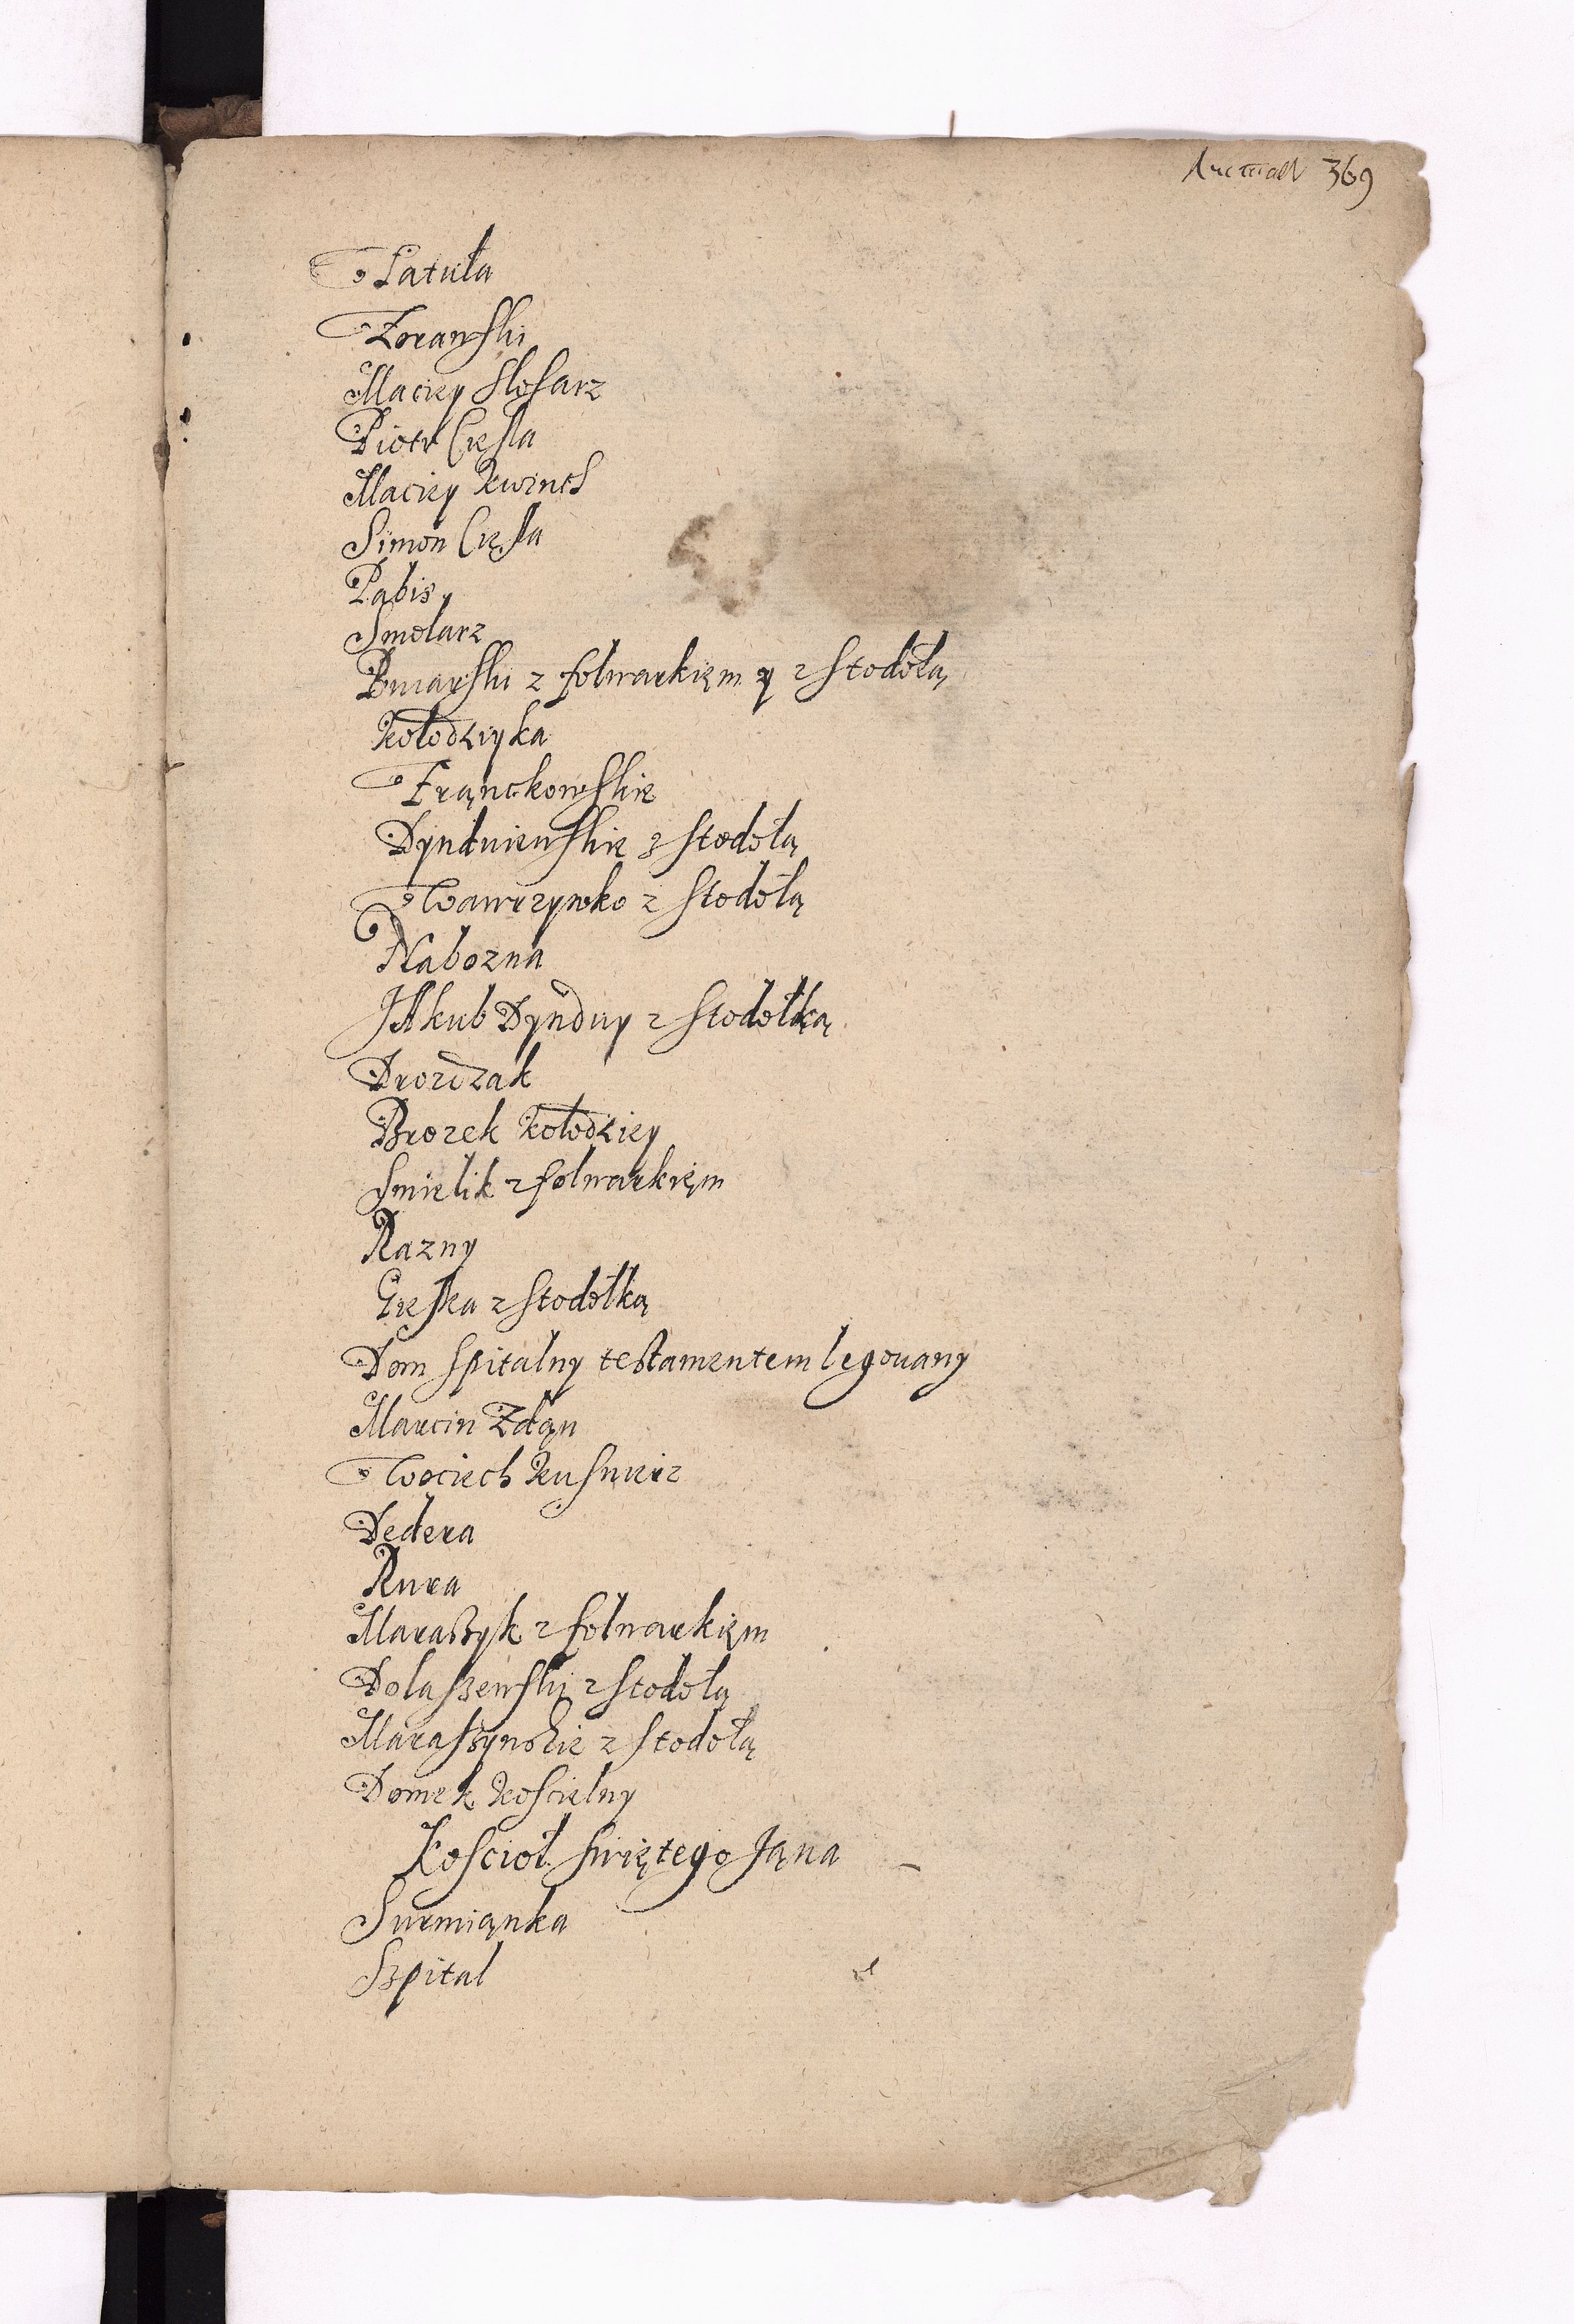 369
Łatuła
Zorawski
Maciey Slosarz
Piotr Cieśla
Maciey
Simon Cieśla
Pabis
Smolarz
z folwarkięm y z Stodołą
Kołodzieyka
Franckowskie
Dyndniewskie z stodołą
Wawrzynko z Stodołą
Nabozna
JAkub Dynduy z Stodołką
Drozdzak
Brozek Kołodziey
Smielik z folwarkięm
Razny
Gieska z Stodołką
Dom spitalny testamentem legowany
Marcin Zdąn
Wociech Kusnierz
Dedera
Rura
Maraszyk z folwarkięm
Dolaszewski z Stodołą
Maraszynskie z Stodołą
Domek Koscielny
Koscioł swiętego Jąna
Surmiąnka
Szpital